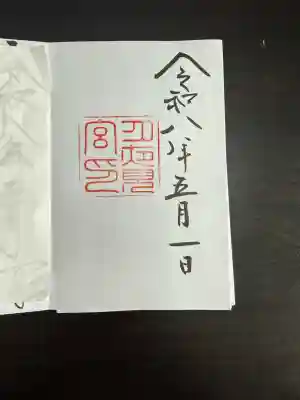 令和八年五月一日
宮印